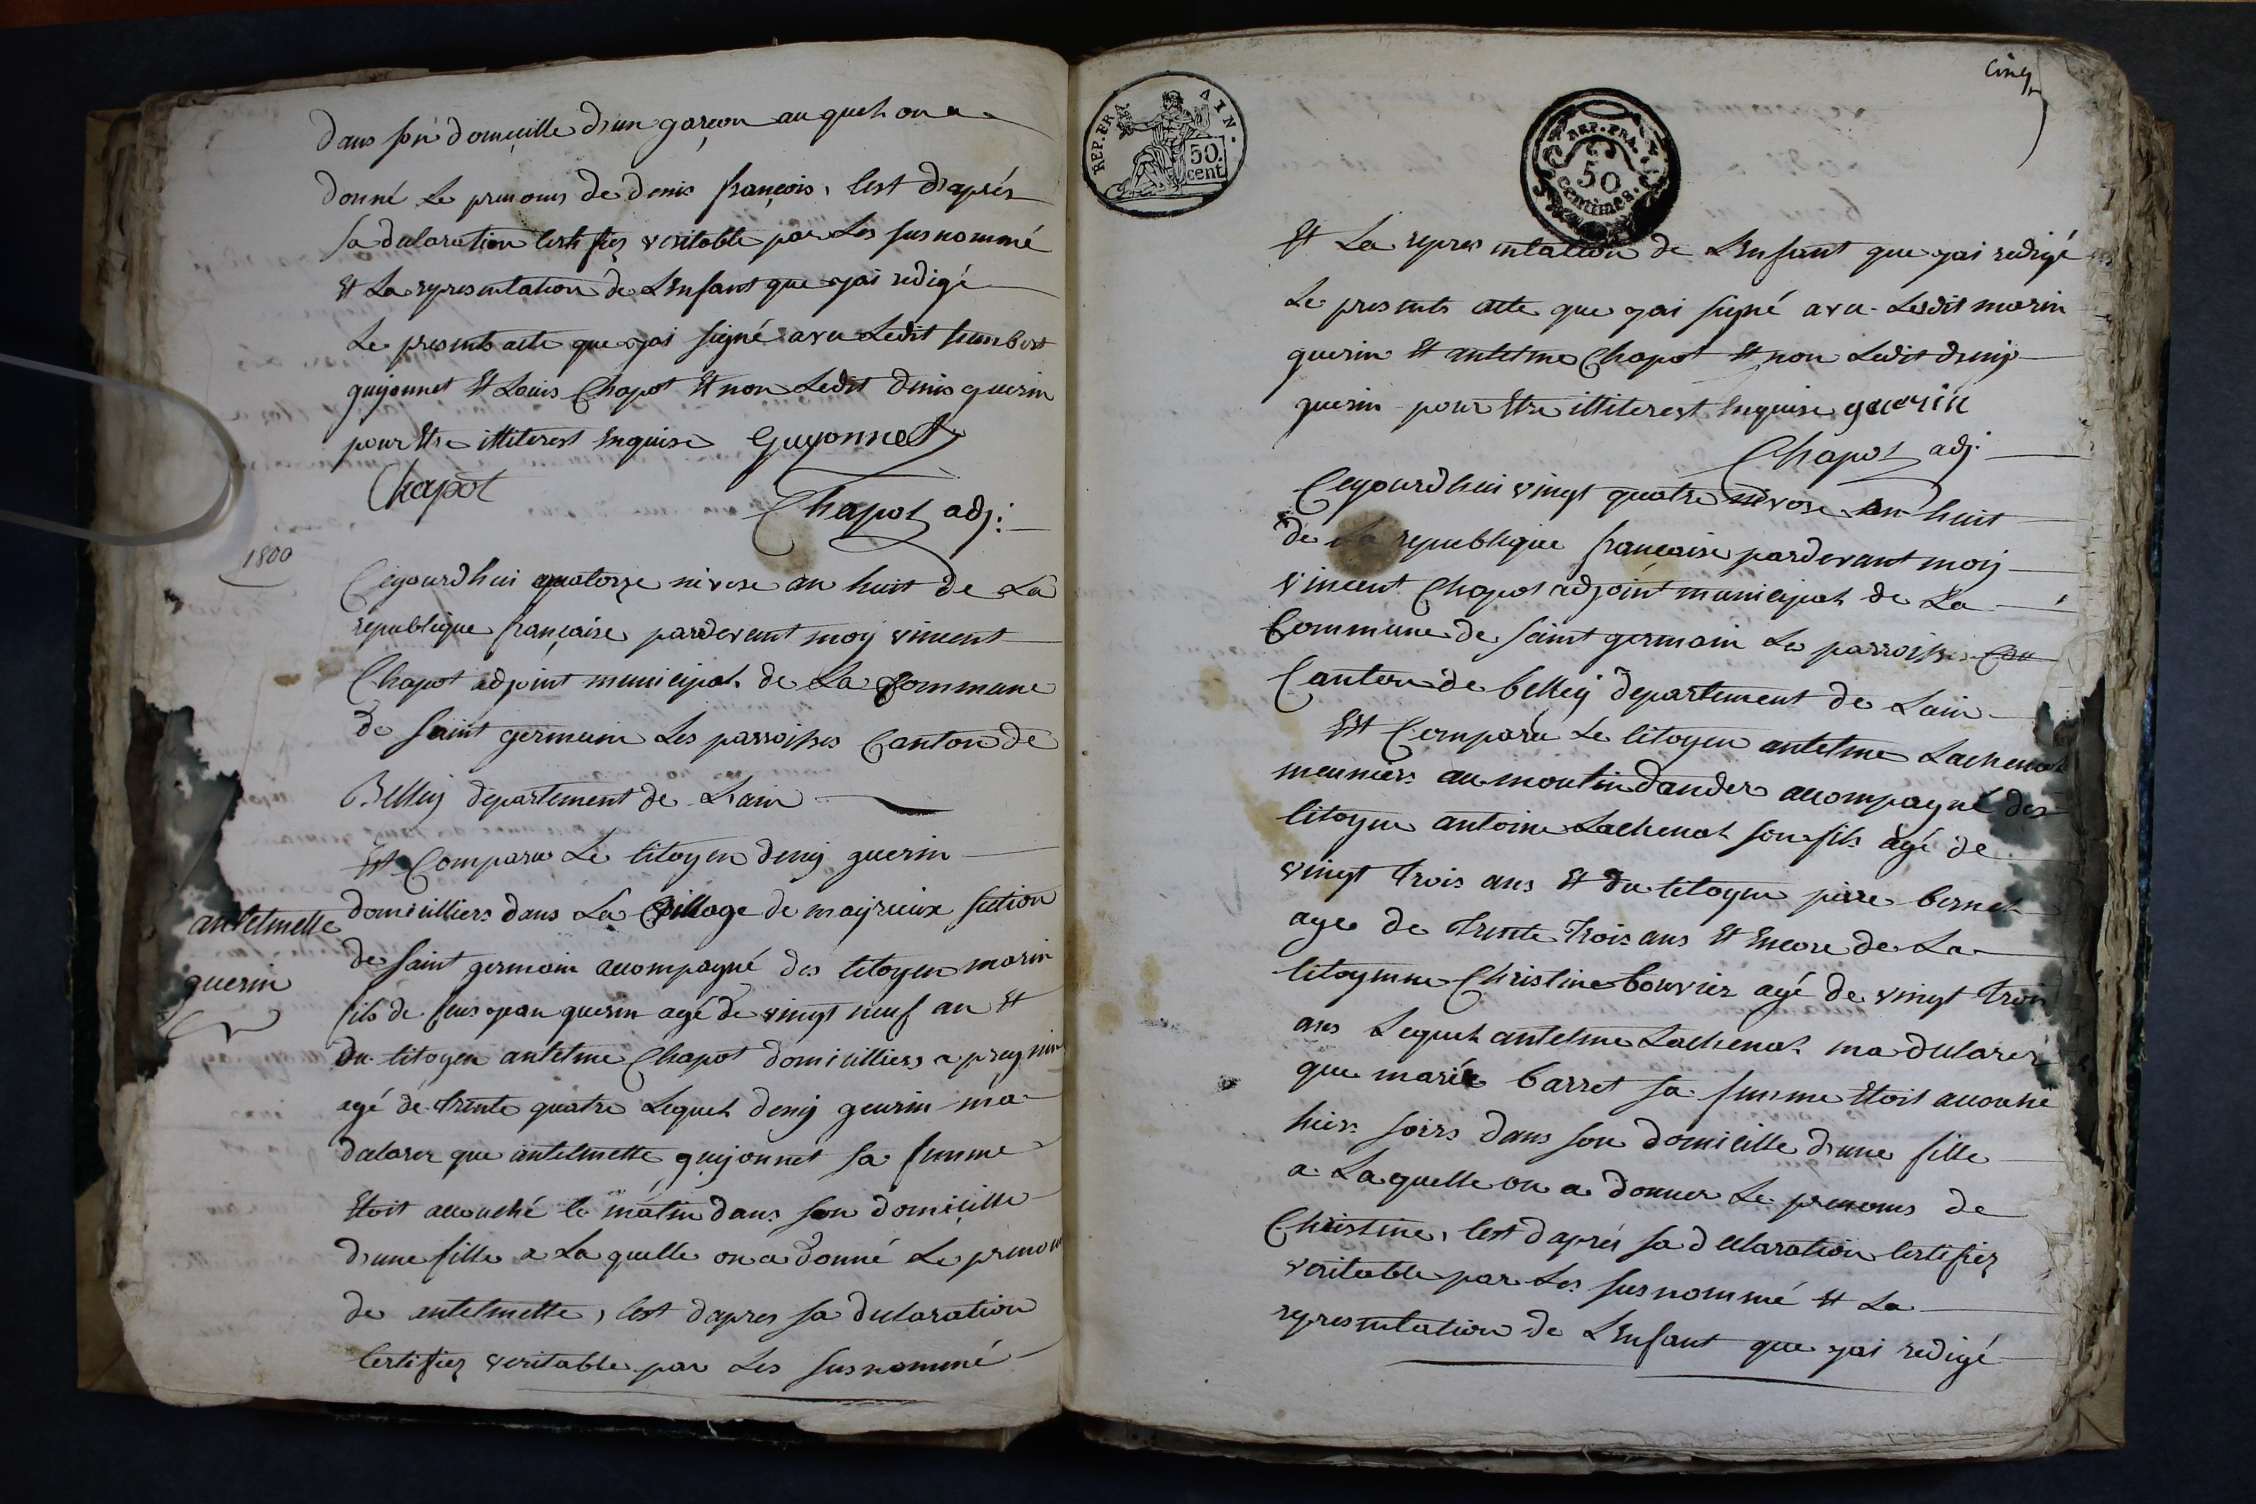 dans son domicille d'un garçon au quel on a
donné le prenoms de denis françois, c'est d'aprés
sa declaration certifiez veritable par les susnommé
et la representation de l'enfant que j'ai redigé
le presents acte que j'ai signé avec ledit humbert
guyonnet et Louis Chapot et non ledit denis guerin
pour etre illiterest enquise Guyonnet
Chapot
Chapot adj:
1800
Cejourdhui quatorze nivose an huit de La
republique française pardevant moy vincent
Chapot adjoint municipal de La Commune
de saint germain Les parroisses Canton de
Belley departement de Lain
Est Comparu Le Citoyen deny guerin
domicilliers dans Le village de mayrieux section
antelmette
de saint germain accompagné des citoyen marin
guerin
fils de feus jean guerin agé de vingt neuf an et
du citoyen antelme Chapot domicilliers a
agé de trente quatre Lequel deny geurin ma
declarer que antelmette guyonnet sa femme
etoit accouché ce matin dans son domicille
d'une fille a La quelle on a donné Le prenom
de antelmette, c'est d'apres sa declaration
Certifiez veritable par Les susnommé
REP. FRA. AIN.
50 cent.
REP. FRA.
50
centimes.
Cinq
et La representation de L'enfant que j'ai redigé
Le presents acte que j'ai signé avec Lesdit marin
guerin et antelme Chapot et non Ledit deny
guerin pour etre illiterest enquise guerin
Chapot adj.
Cejourdhui vingt quatre nivose an huit
de La republique française pardevant moy
vincent Chapot adjoint municipal de La
Commune de saint germain Les parroisses
Canton de belley departement de Lain
Est Comparu Le Citoyen antelme Lachenal
meuniers au moulin dander accompagné des
Citoyen antoine Lachenal son fils agé de
vingt trois ans et du Citoyen pierre bernel
age de trente trois ans et encore de La
Citoyenne Christine bouvier agé de vingt trois
ans Lequel antelme Lachenal ma declarer
que marie barret sa femme etoit accouché
hiers soirs dans son domicille d'une fille
a La quelle on a donner Le prenoms de
Christine, c'est d'aprés sa declaration Certifiez
veritable par Les susnommé et La
representation de L'enfant que j'ai redigé